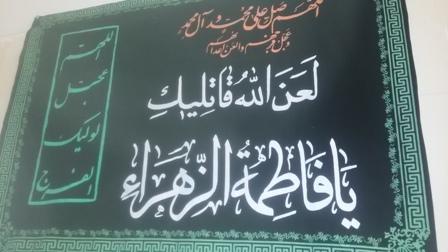 اللهم صل علی محمد و آل محمد
و عجل فرجهم والعن اعدائهم
لَعَنَ اللهُ قَاتِلِيكِ
يَا فَاطِمَةُ الزَّهرَاءِ
اللهم
عجل
لوليك
الفرج